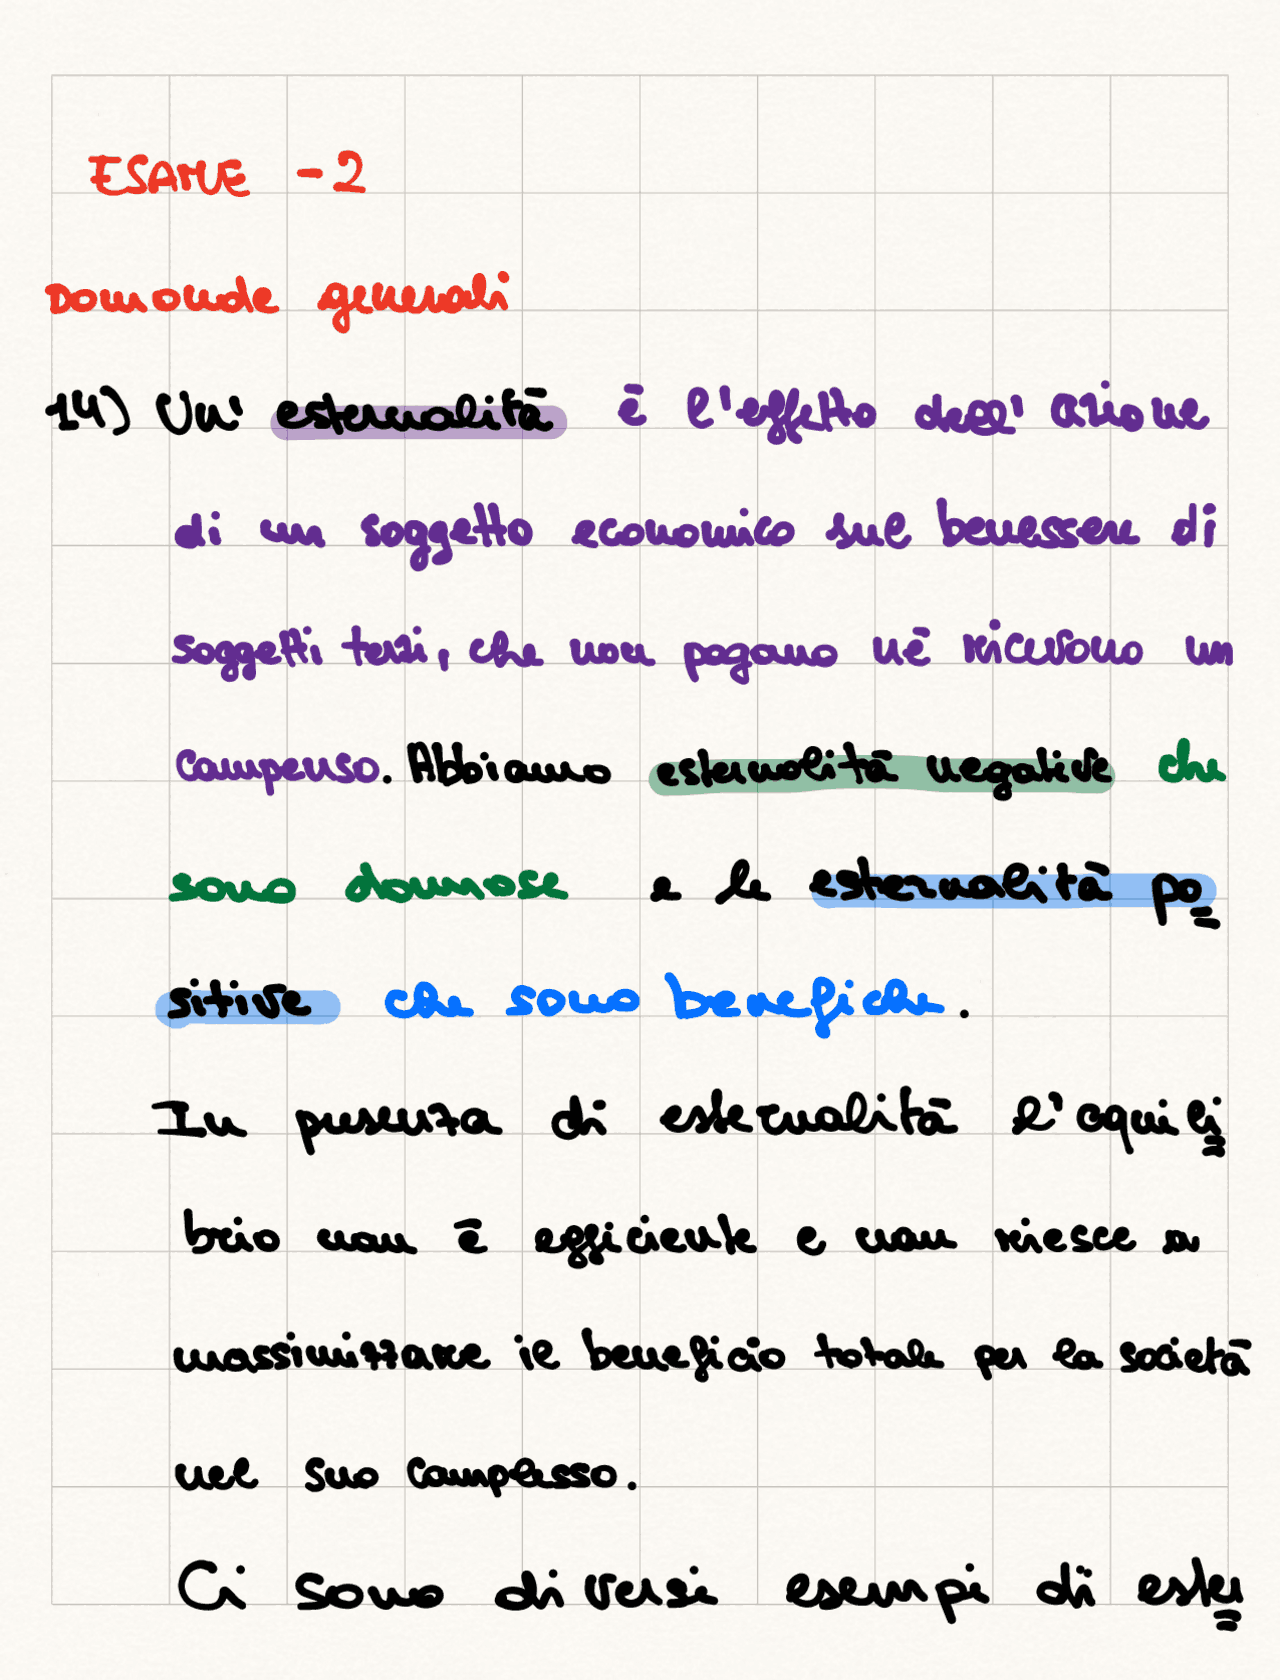 ESAME - 2
Domande generali
14) Un' esternalità è l'effetto dell' azione
di un soggetto economico sul benessere di
soggetti terzi, che non pagano nè ricevono un
compenso. Abbiamo esternalità negative che
sono dannose e le esternalità po=
sitive che sono benefiche.
In presenza di esternalità l'equili=
brio non è efficiente e non riesce a
massimizzare il beneficio totale per la società
nel suo complesso.
Ci sono diversi esempi di ester=